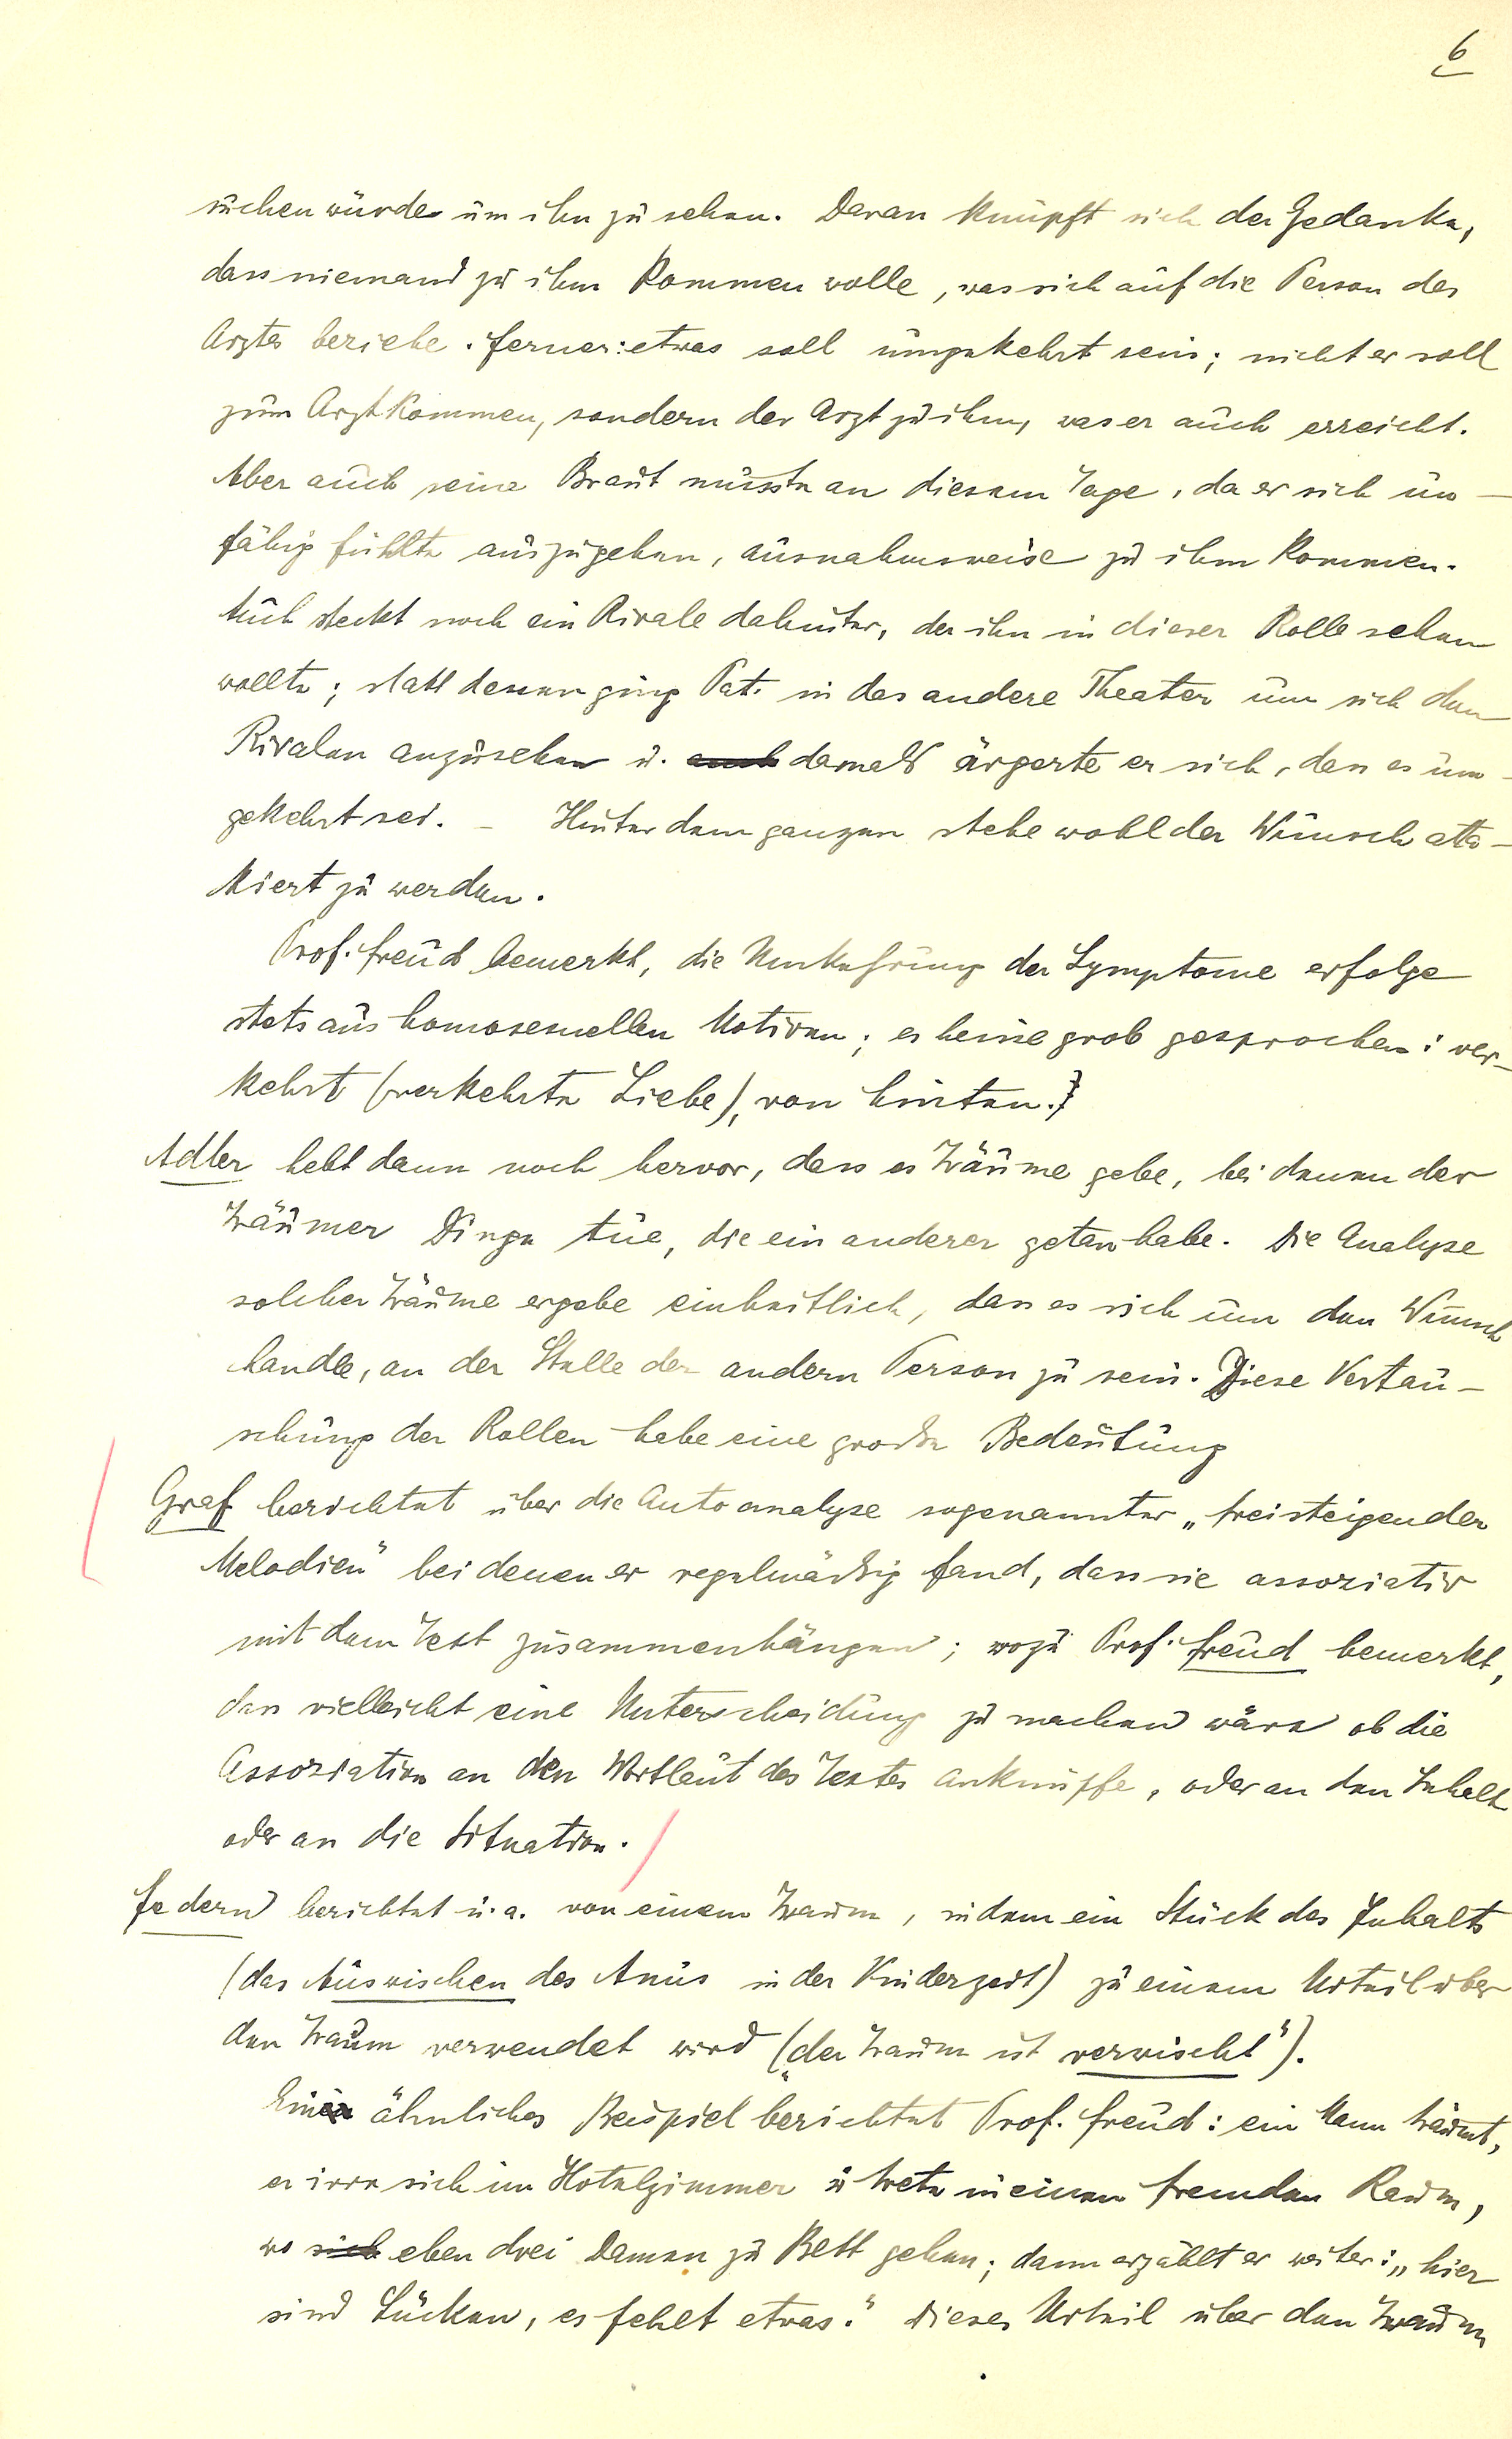 6
suchen würde um ihn zu sehen. Daran knüpft sich der Gedanke,
dass niemand zu ihm kommen wolle, was sich auf die Person des
Arztes beziehe. ferner: etwas soll umgekehrt sein; nicht er soll
zum Arzt kommen, sondern der Arzt zu ihm, was er auch erreicht.
Aber auch seine Braut musste an diesem Tage, da er sich un-
fähig fühlte auszugehen, ausnahmsweise zu ihm kommen.
Auch steckt noch ein Rivale dahinter, der ihn in dieser Rolle sehen
wollte; statt dessen ging Pat. in das andere Theater um sich den
Rivalen anzusehen u. auch damals ärgerte er sich, dass es um-
gekehrt sei. – Hinter dem ganzen stehe wohl der Wunsch atta-
kiert zu werden.
Prof. Freud bemerkt, die Umkehrung der Symptome erfolge
stets aus homosexuellen Motiven; es heisse grob gesprochen: ver-
kehrt (verkehrte Liebe), von hinten.}
Adler hebt dann noch hervor, dass es Träume gebe, bei denen der
Träumer Dinge tue, die ein anderer getan habe. Die Analyse
solcher Träume ergebe einheitlich, dass es sich um den Wunsch
handle, an der Stelle der andern Person zu sein. Diese Vertau-
schung der Rollen habe eine große Bedeutung
Graf berichtet über die Autoanalyse sogenannter „freisteigender
Melodien" bei denen er regelmäßig fand, dass sie assoziativ
mit dem Text zusammenhängen; wozu Prof. Freud bemerkt,
dass vielleicht eine Unterscheidung zu machen wäre ob die
Assoziation an den Wortlaut des Textes anknüpfe, oder an den Inhalt
oder an die Situation.
Federn berichtet u. a. von einem Traum, in dem ein Stück des Inhalts
(das Auswischen des Anus in der Kinderzeit) zu einem Urteil über
den Traum verwendet wird („der Traum ist verwischt").
Ein ähnliches Beispiel berichtet Prof. Freud: ein Mann träumt,
er irre sich im Hotelzimmer u trete in einen fremden Raum,
wo sich eben drei Damen zu Bett gehen; dann erzählt er weiter: „hier
sind Lücken, es fehlt etwas." Dieses Urteil über den Traum